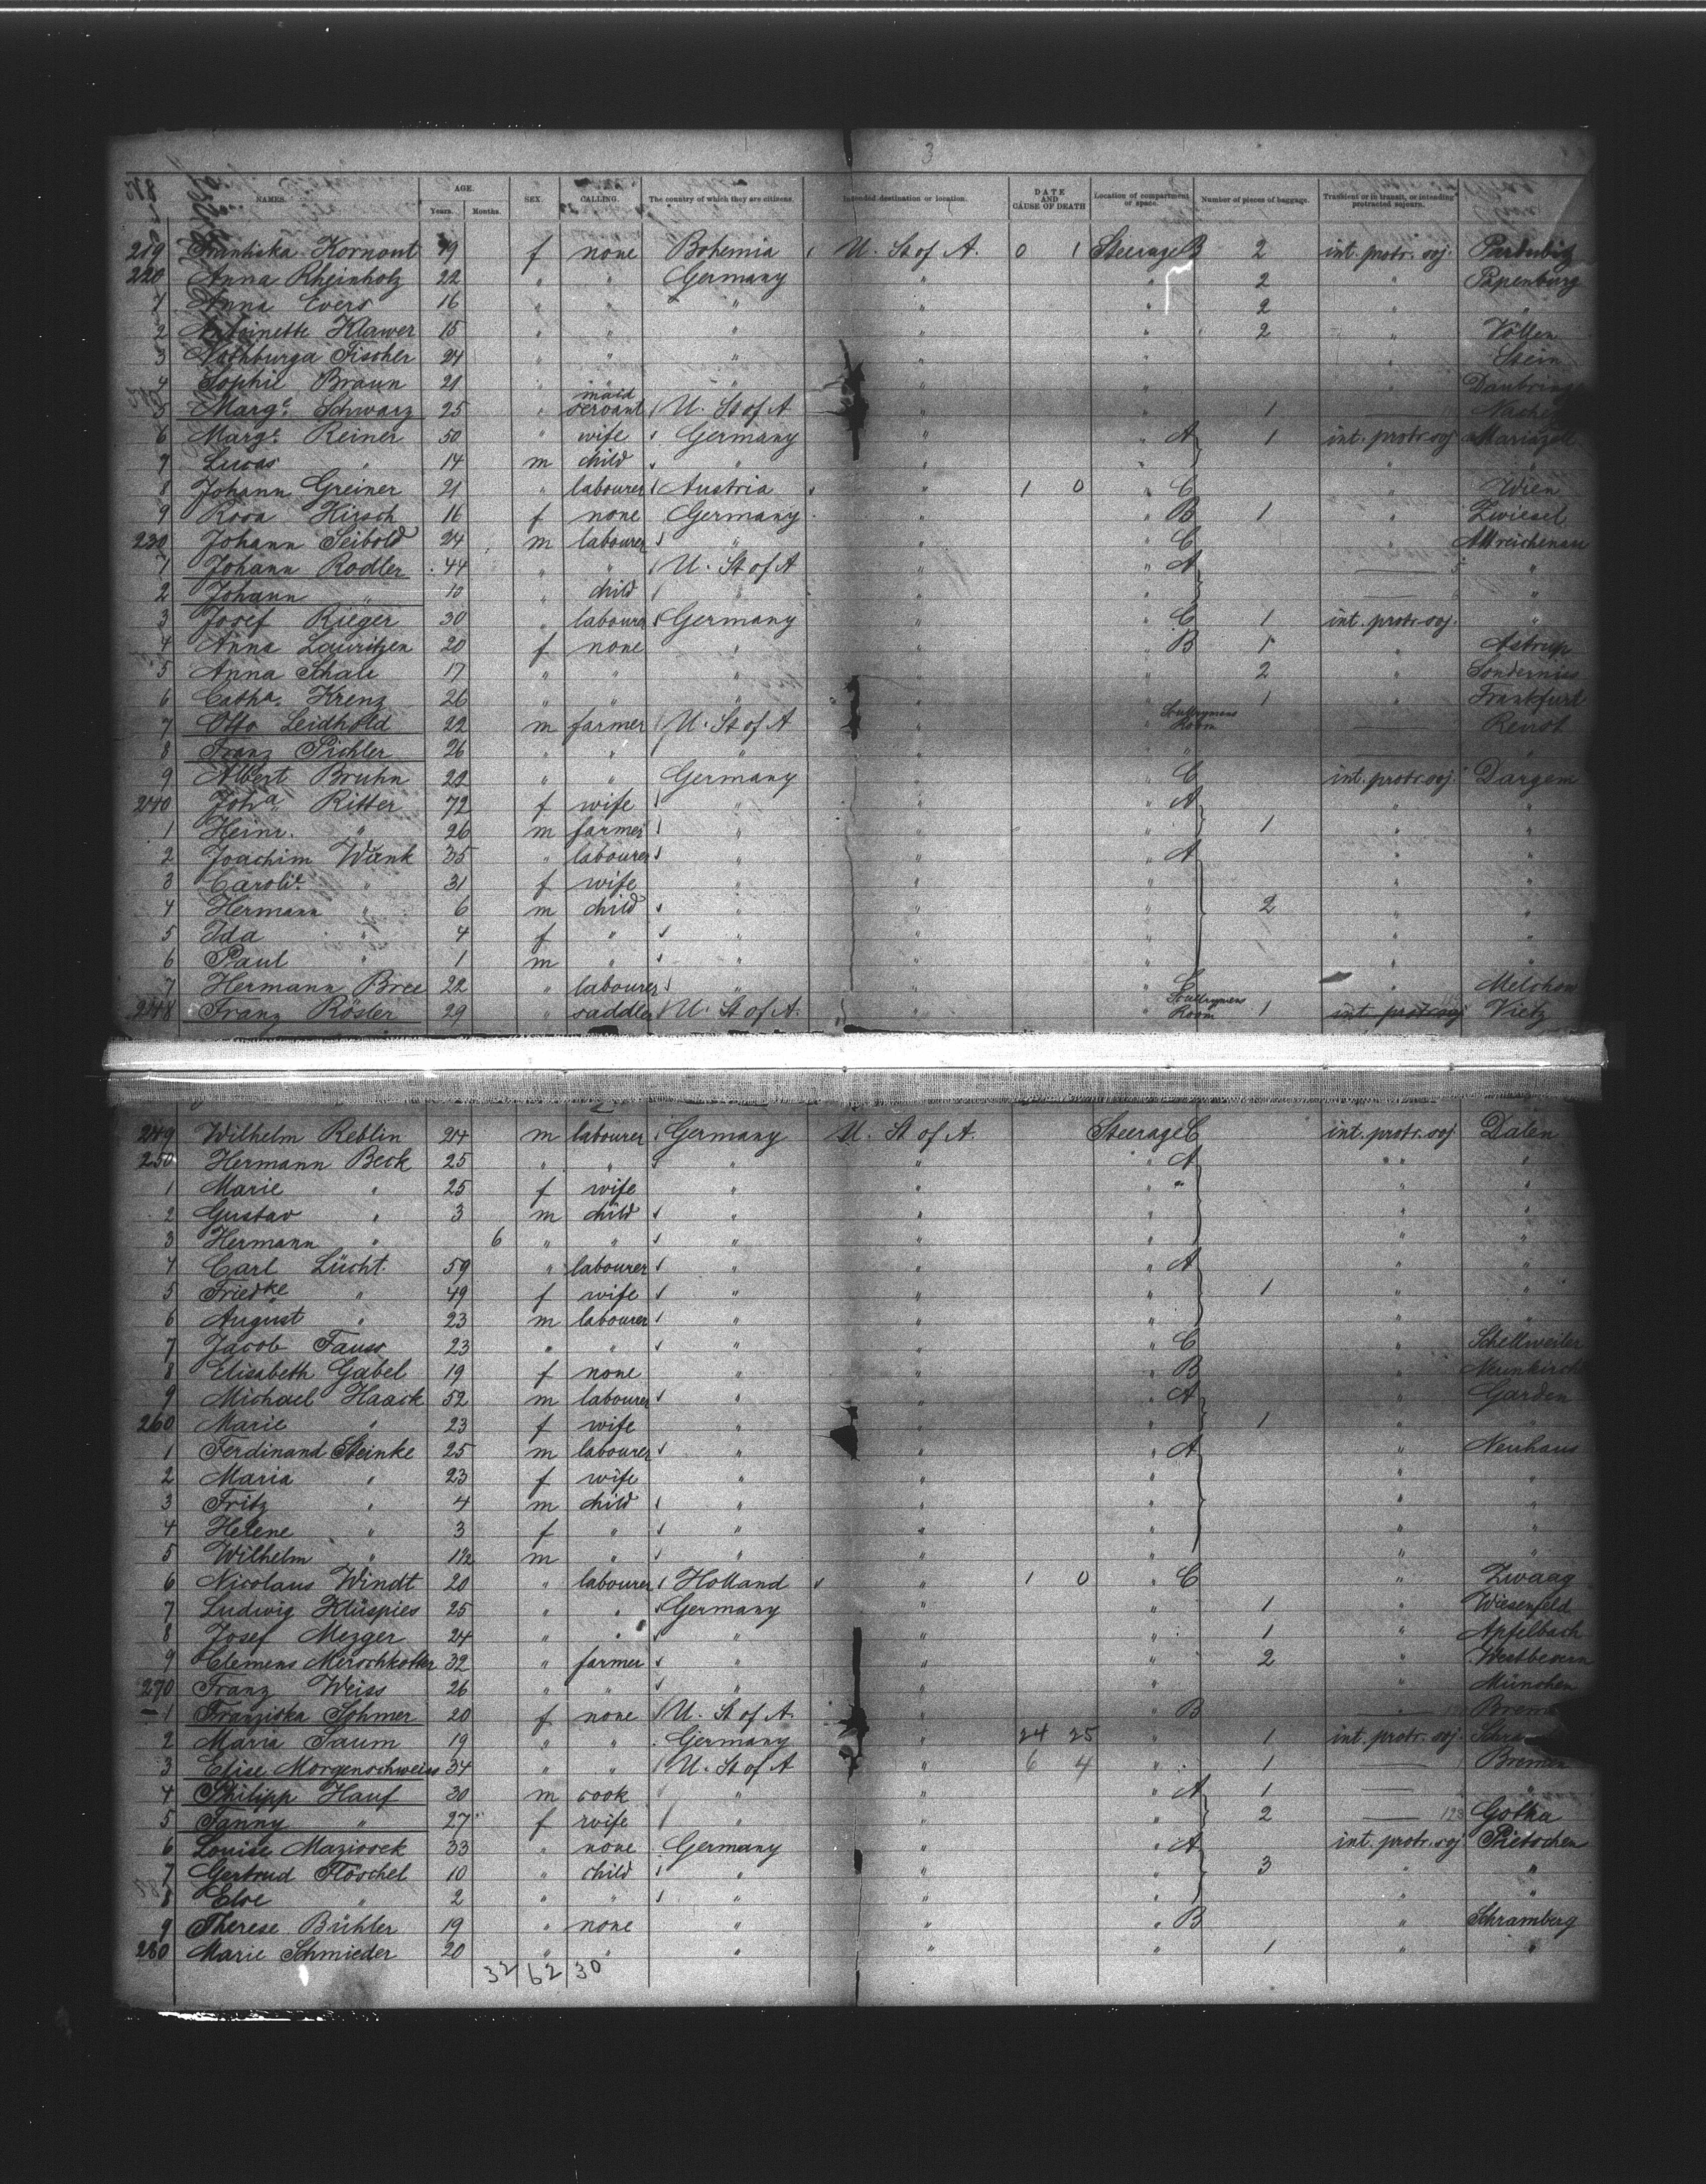 3
NAMES. AGE. Years. Months. SEX. CALLING. The country of which they are citizens. Intended destination or location. DATE AND CAUSE OF DEATH Location of compartment or space. Number of pieces of baggage. Transient or in transit, or intending protracted sojourn.
219 Franziska Kornout 19 f none Bohemia U. St of A. 0 1 Steerage B 2 int. protr. soj. Pardubitz
220 Anna Rheinholz 22 " " Germany " " 2 " Papenburg
1 Anna Evers 16 " " " " " 2 " "
2 Antoinette Klawer 15 " " " " " 2 " Völlen
3 Nothburga Fischer 24 " " " " " " Stein
4 Sophie Braun 21 " " " " " "
5 Marge. Schwarz 25 " maid servant U. St of A " " 1 —
6 Marge. Reiner 50 " wife Germany " " A 1 int. protr. soj Mariazell
7 Lucas " 14 m child " " " " "
8 Johann Greiner 21 " labourer Austria " 1 0 " C " Wien
9 Rosa Hirsch 16 f none Germany " " B 1 " Zwiesel
230 Johann Seibold 24 m labourer " " " C " Altreichenau
1 Johann Rodler 44 " " U. St of A " " A — "
2 Johann " 10 " child " " " — "
3 Josef Rieger 30 " labourer Germany " " C 1 int. protr. soj. "
4 Anna Lauritzen 20 f none " " " B 1 " Astrup
5 Anna Schale 17 " " " " " 2 "
6 Catha. Krenz 26 " " " " " 1 " Frankfurt
7 Otto Leidhold 22 m farmer U. St of A " " Room —
8 Franz Pichler 26 " " " " " "
9 Albert Bruhn 22 " " Germany " " C int. protr. soj. Dargem
240 Joha. Ritter 72 f wife " " " A " "
1 Heinr. " 26 m farmer " " " 1 " "
2 Joachim Wank 35 " labourer " " " A " "
3 Carole. " 31 f wife " " " " "
4 Hermann " 6 m child " " " 2 " "
5 Ida " 4 f " " " " " "
6 Paul " 1 m " " " " " "
7 Hermann Bree 22 " labourer " " " C " Melchow
248 Franz Rösler 29 " saddler U. St of A. " " Room 1 int. protr. soj Vietz
249 Wilhelm Reblin 24 m labourer Germany U. St of A. Steerage C int. protr. soj. Daten
250 Hermann Beck 25 " " " " " A " "
1 Marie " 25 f wife " " " " " "
2 Gustav " 3 m child " " " " "
3 Hermann " 6 " " " " " " "
4 Carl Lücht. 59 " labourer " " " A " "
5 Friedke " 49 f wife " " " 1 " "
6 August " 23 m labourer " " " " "
7 Jacob Fauss 23 " " " " " C " Schellweiler
8 Elisabeth Gabel 19 f none " " " B " Neunkirch
9 Michael Haack 52 m labourer " " " A " Garden
260 Marie " 23 f wife " " " 1 " "
1 Ferdinand Steinke 25 m labourer " " " A " Neuhaus
2 Maria " 23 f wife " " " " "
3 Fritz " 4 m child " " " " "
4 Helene " 3 f " " " " " "
5 Wilhelm " 1½ m " " " " " "
6 Nicolaus Windt 20 " labourer Holland " 1 0 " C " Zwaag
7 Ludwig Klüspies 25 " " Germany " " 1 " Wiesenfeld
8 Josef Mezger 24 " " " " " 1 " Apfelbach
9 Clemens Merschkotter 32 " farmer " " " 2 " Westbevern
270 Franz Weiss 26 " " " " " " München
1 Franziska Sohmer 20 f none U. St of A. " " B —
2 Maria Saum 19 " " Germany " 24 25 " 1 int. protr. soj.
3 Elise Morgenschweiss 34 " " U. St of A " 6 4 " 1 — Bremen
4 Philipp Hauf 30 m cook " " " A 1 — "
5 Fanny " 27 f wife " " " 2 — 123 Gotha
6 Louise Maziosek 33 " none Germany " " A int. protr. soj Pietschen
7 Gertrud Floschel 10 " child " " " 3 " "
8 Else " 2 " " " " " " "
9 Therese Bühler 19 " none " " " B " Schramberg
280 Marie Schmieder 20 " " " " " 1 " "
32 62 30